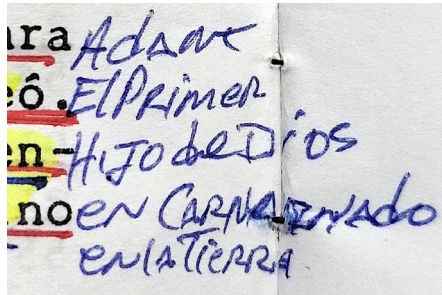 ara Adame
eó. El Primer
en- HIJO de Dios
no en CARNE ENVADO
en la TIERRA